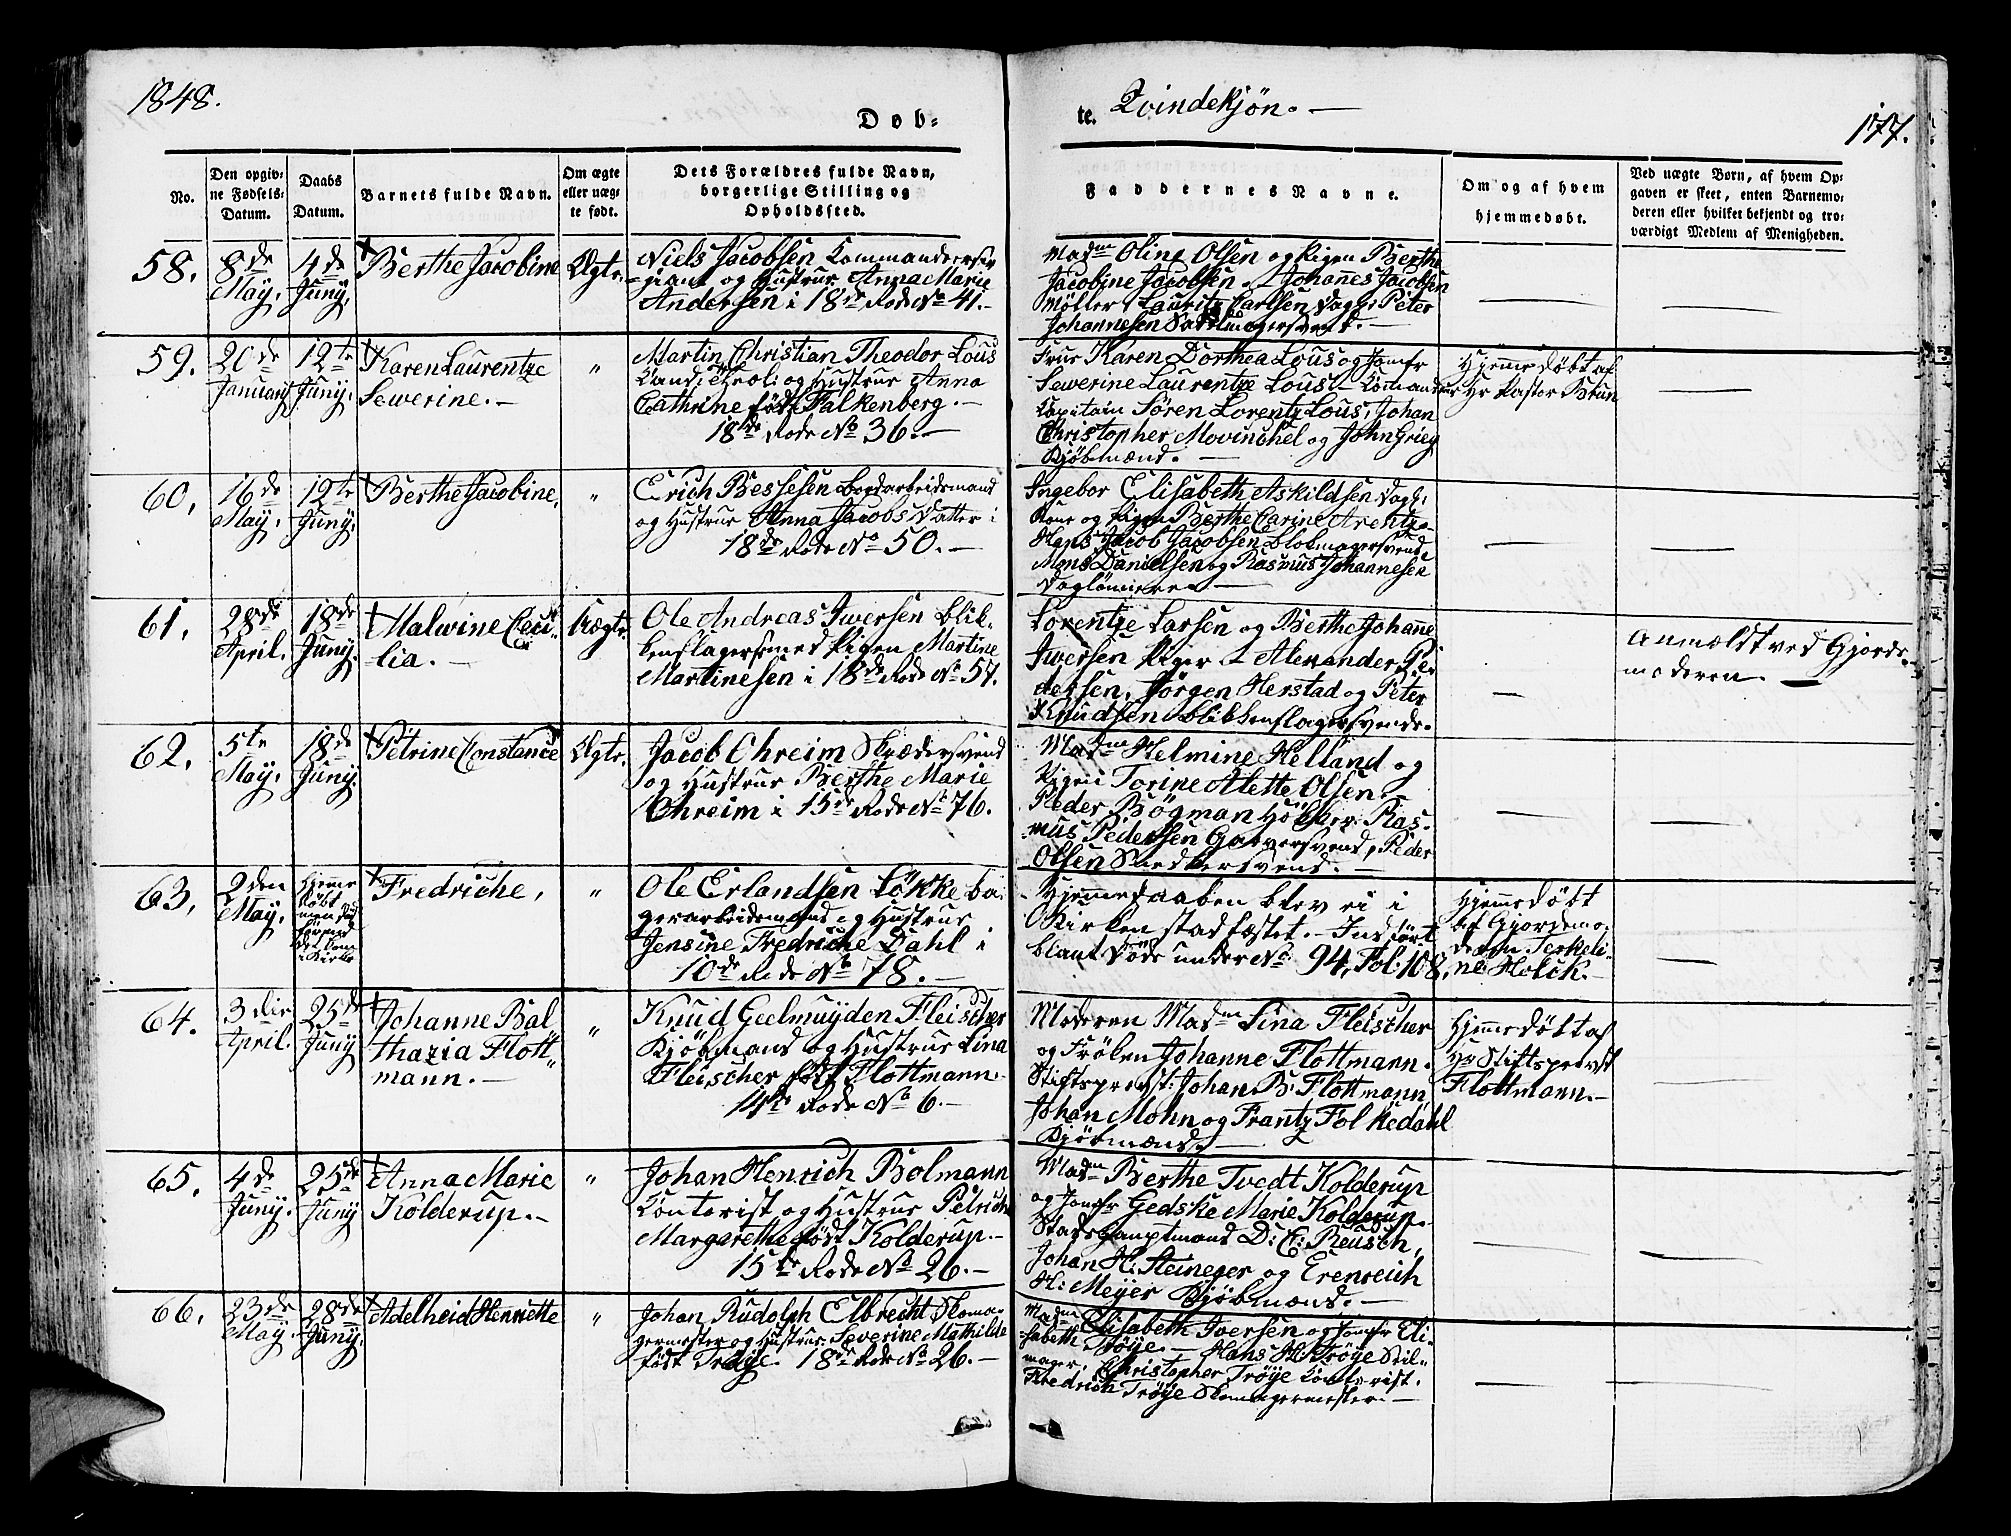 1848.
Döb-
te. Qvindekjön. —
177.
No.
Den opgiv-
ne Fødsels-
Datum.
Daabs
Datum.
Barnets fulde Navn.
Om ægte
eller uæg-
te født.
Dets Forældres fulde Navn,
borgerlige Stilling og
Opholdssted.
Faddernes Navne.
Om og af hvem
hjemmedøbt.
Ved uægte Børn, af hvem Op-
gaven er skeet, enten Barnemo-
deren eller hvilket bekjendt og tro-
værdigt Medlem af Menigheden.
58.
8de
May.
4de
Juny.
Berthe Jacobine
Ægte.
Niels Jacobsen Commandeerser-
giant og Hustrue Anna Marie
Andersen i 18de Rode No 41. —
Madm Oline Olsen og Pigen Berthe
Jacobine Jacobsen - Johannes Jacobsen
Møller, Lauritz Carlsen Dagl. Peter
Johannesen Sadelmagersvend. —
59.
20de
January
12te
Juny.
Karen Laurentze
Sewerine. —
"
Martin Christian Theodor Lous
Cand. Theoli og Hustrue Anna
Cathrine født Falkenberg. —
18de Rode No 36. —
Frue Karen Dorthea Lous og Jomfr
Sewerine Laurentze Lous — Commandeur
Capitain Sören Lorentz Lous, Johan
Christopher Mowinchel og John Grieg
Kjöbmænd. —
Hjemmedöbt af
Hr Pastor Brun
60.
16de
May.
12te
Juny.
Berthe Jacobine.
"
Erich Bessesen Bordarbeidsmand
og Hustrue Anna Jacobs Datter i
18de Rode No 50. —
Ingebor Elisabeth Askildsen Dagl.
Kone og Pigen Berthe Carine Arentze
Hans Jacob Jacobsen Blokmagersvend
Mons Danielsen og Rasmus Johannesen
Daglönnere —
61.
28de
April.
18de
Juny.
Malwine Ceci-
lia. —
Uægte
Ole Andreas Iwersen Blik-
kenslagersv. med Pigen Martine
Martinesen i 18de Rode No 57.
Lorentze Larsen og Berthe Johanne
Iwersen Piger - Alexander Pe
dersen, Jörgen Herstad og Peter
Knudsen Blikkenslagersvende.
Anmældt ved Gjorde-
moderen. —
62.
5te
May.
18de
Juny.
Petrine Constance
Ægte.
Jacob Ohreim Skrædersvend
og Hustrue Berthe Marie
Ohreim i 15de Rode No 76.
Madm Helmine Helland og
Pigen Torine Alette Olsen.
Peder Bögman Höker, Ras-
mus Pedersen Garversvend, Peder
Olsen Snedkersvend. —
63.
2den
May.
Hjemme
döbt
men Död
förend
det kom
i Kirke
Fredriche,
"
Ole Erlandsen Lökke Ba-
gerarbeidsmand og Hustrue
Jensine Fredriche Dahl i
10de Rode No 78. —
Hjemmedaaben blev ei i
Kirken stadfæstet. — Indfört
blant Döde under No 94, Fol: 108.
Hjemmedöbt
af Gjordemo-
deren Terkeli-
ne Holck. —
64.
3die
April.
25de
Juny
Johanne Bal
thazia Flott-
mann. —
"
Knud Geelmuyden Fleischer
Kjöbmand og Hustrue Lina
Fleischer født Flottmann.
Rode No 6. —
Moderen Madm Lina Fleischer
og Frölen Johanne Flottmann.
Stiftsprovst: Johan B. Flottmann
Johan Mohn og Frantz Folkedahl
Kjöbmænd. —
Hjemmedöbt af
Hr Stiftsprovst
Flottmann. —
65.
4de
Juny.
25de
Juny
Anna Marie
Kolderup. —
"
Johan Henrich Bolmann
Contorist og Hustrue Petriche
Margarethe født Kolderup. —
15de Rode No 26. —
Madm Berthe Tvedt Kolderup
og Jomfr Gedske Marie Kolderup.
Stadshauptmand D: C: Reusch,
Johan H: Steineger og Erenreich
H: Meyer Kjöbmænd. —
66.
23de
May.
28de
Juny.
Adelheid Henriette
"
Johan Rudolph Elbrecht Skoma-
germester og Hustrue Severine Mathilde
født Tröye. 18de Rode No 26. —
Madm Elisabeth Iversen og Jomfr Eli
sabeth Tröye. — Hans H: Tröye Seil-
mager, Christopher Tröye Contorist.
Fredrich Tröye Skomagermester. —